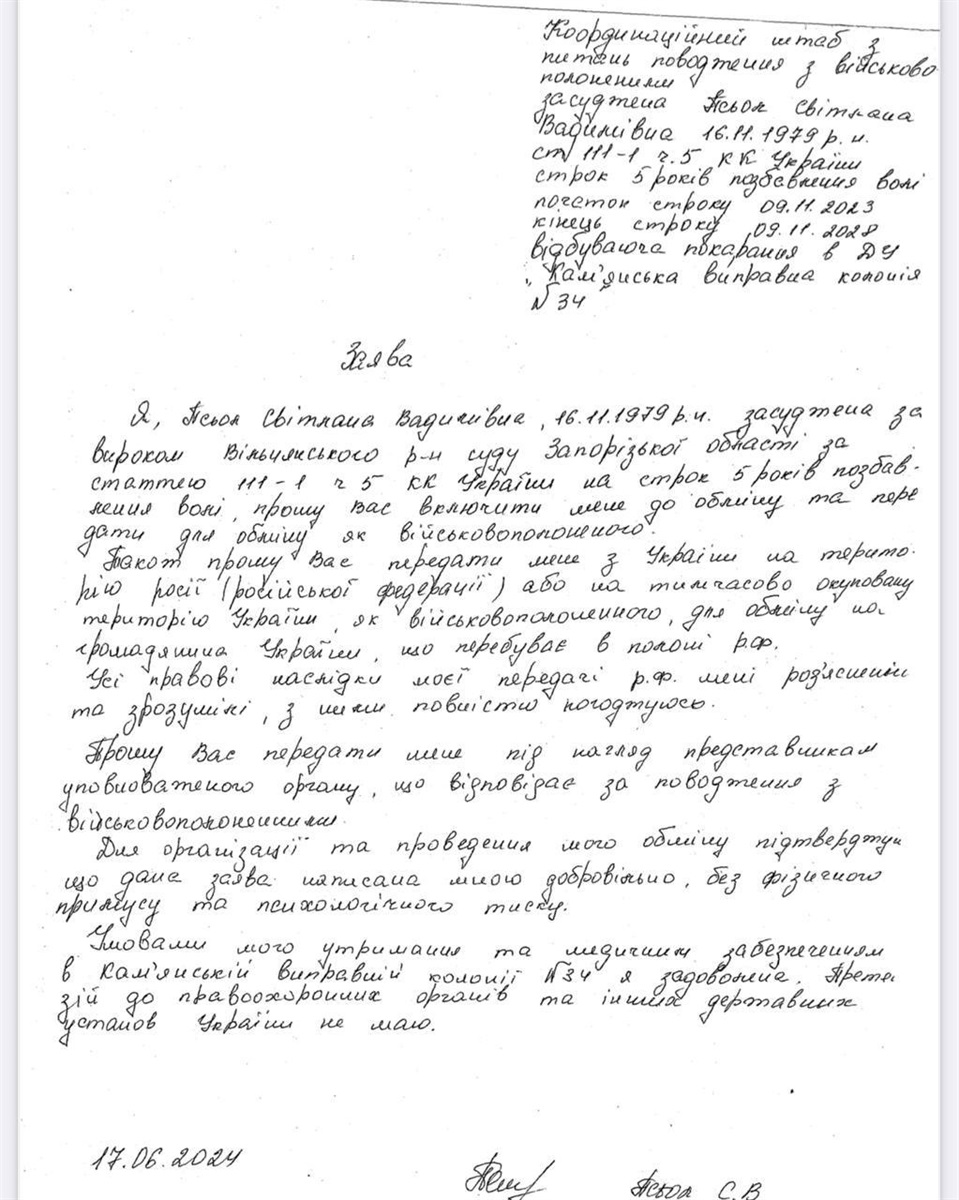 Координаційний штаб з
питань поводження з військово
полоненими
засуджена Псьол Світлана
Вадимівна 16.11.1979 р.н.
ст 111-1 ч.5 КК України
строк 5 років позбавлення волі
початок строку 09.11.2023
кінець строку 09.11.2028
відбуваюча покарання в ДУ
„Кам'янська виправна колонія
№34
Заява
Я, Псьол Світлана Вадимівна, 16.11.1979 р.н. засуджена за
вироком Вільнянського р-н суду Запорізької області за
статтею 111-1 ч 5 КК України на строк 5 років позбав-
лення волі, прошу Вас включити мене до обміну та пере
дати для обміну як військовополоненого.
Також прошу Вас передати мене з України на терито-
рію росії (російської федерації) або на тимчасово окуповану
територію України, як військовополоненного, для обміну на
громадянина України, що перебуває в полоні р.ф.
Усі правові наслідки моєї передачі р.ф. мені роз'яснені
та зрозумілі, з ними повністю погоджуюсь.
Прошу Вас передати мене під нагляд представникам
уповноваженого органу, що відповідає за поводження з
військовополоненними.
Для організації та проведення мого обміну підтверджую
що дана заява написана мною добровільно, без фізичного
примусу та психологічного тиску.
Умовами мого утримання та медичним забезпеченням
в Кам'янській виправній колонії №34 я задоволена. Претен
зій до правоохоронних органів та інших державних
установ України не маю.
17.06.2024 Псьол С.В